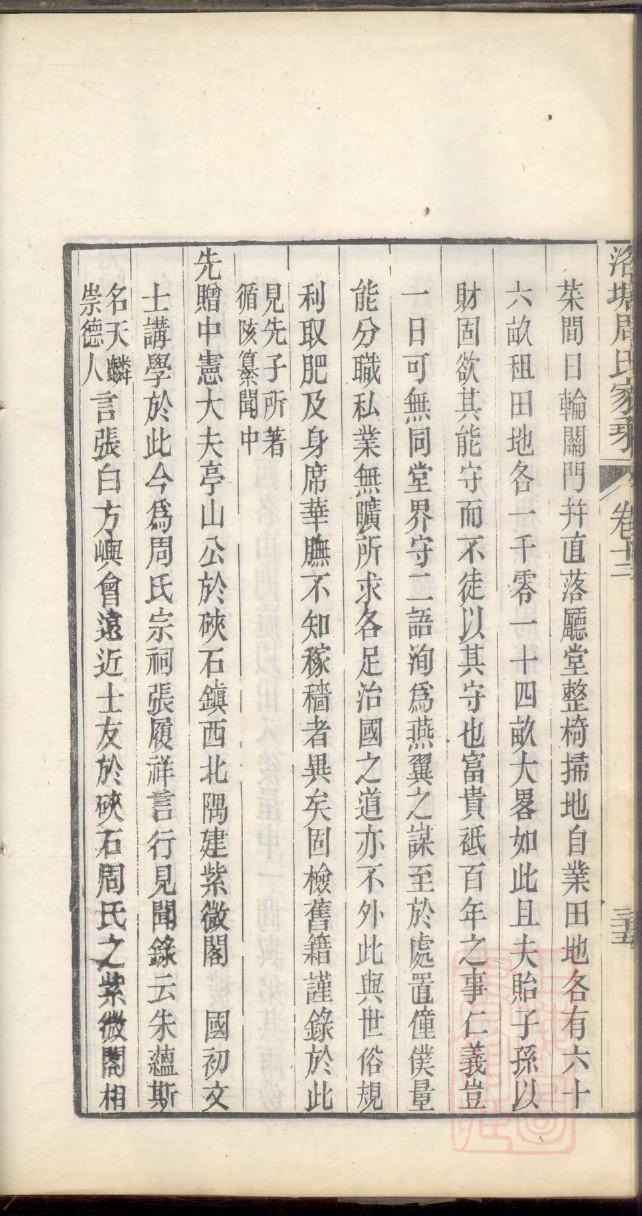 洛塘周氏家乘 卷十三 三五
菜間日輪關門幷直落廳堂整椅掃地自業田地各有六十
六畝租田地各一千零一十四畝大畧如此且夫貽子孫以
財固欲其能守而不徒以其守也富貴祇百年之事仁義豈
一日可無同堂界守二語洵爲燕翼之謀至於處置僮僕量
能分職私業無曠所求各足治國之道亦不外此與世俗規
利取肥及身席華膴不知稼穡者異矣固檢舊籍謹錄於此
見先子所著
循陔纂聞中
先贈中憲大夫亭山公於硤石鎮西北隅建紫微閣 國初文
士講學於此今爲周氏宗祠張履祥言行見聞錄云朱蘊斯
名天麟
崇德人
言張白方嶼會遠近士友於硤石周氏之紫微閣相